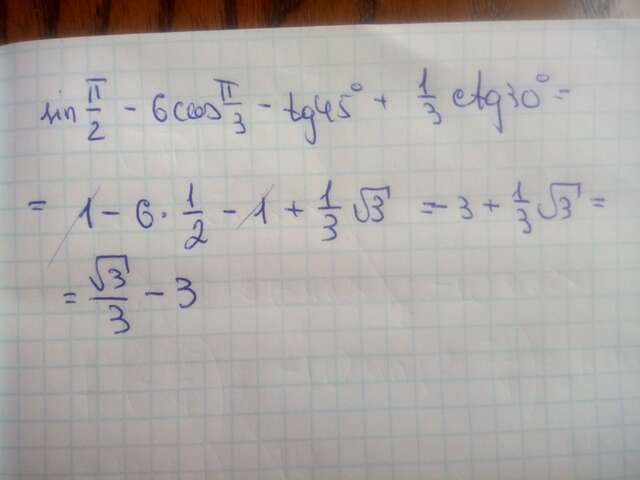 sin π/2 - 6cos π/3 - tg45° + 1/3 ctg30° =
= 1 - 6 · 1/2 - 1 + 1/3 √3 = -3 + 1/3 √3 =
= √3/3 - 3